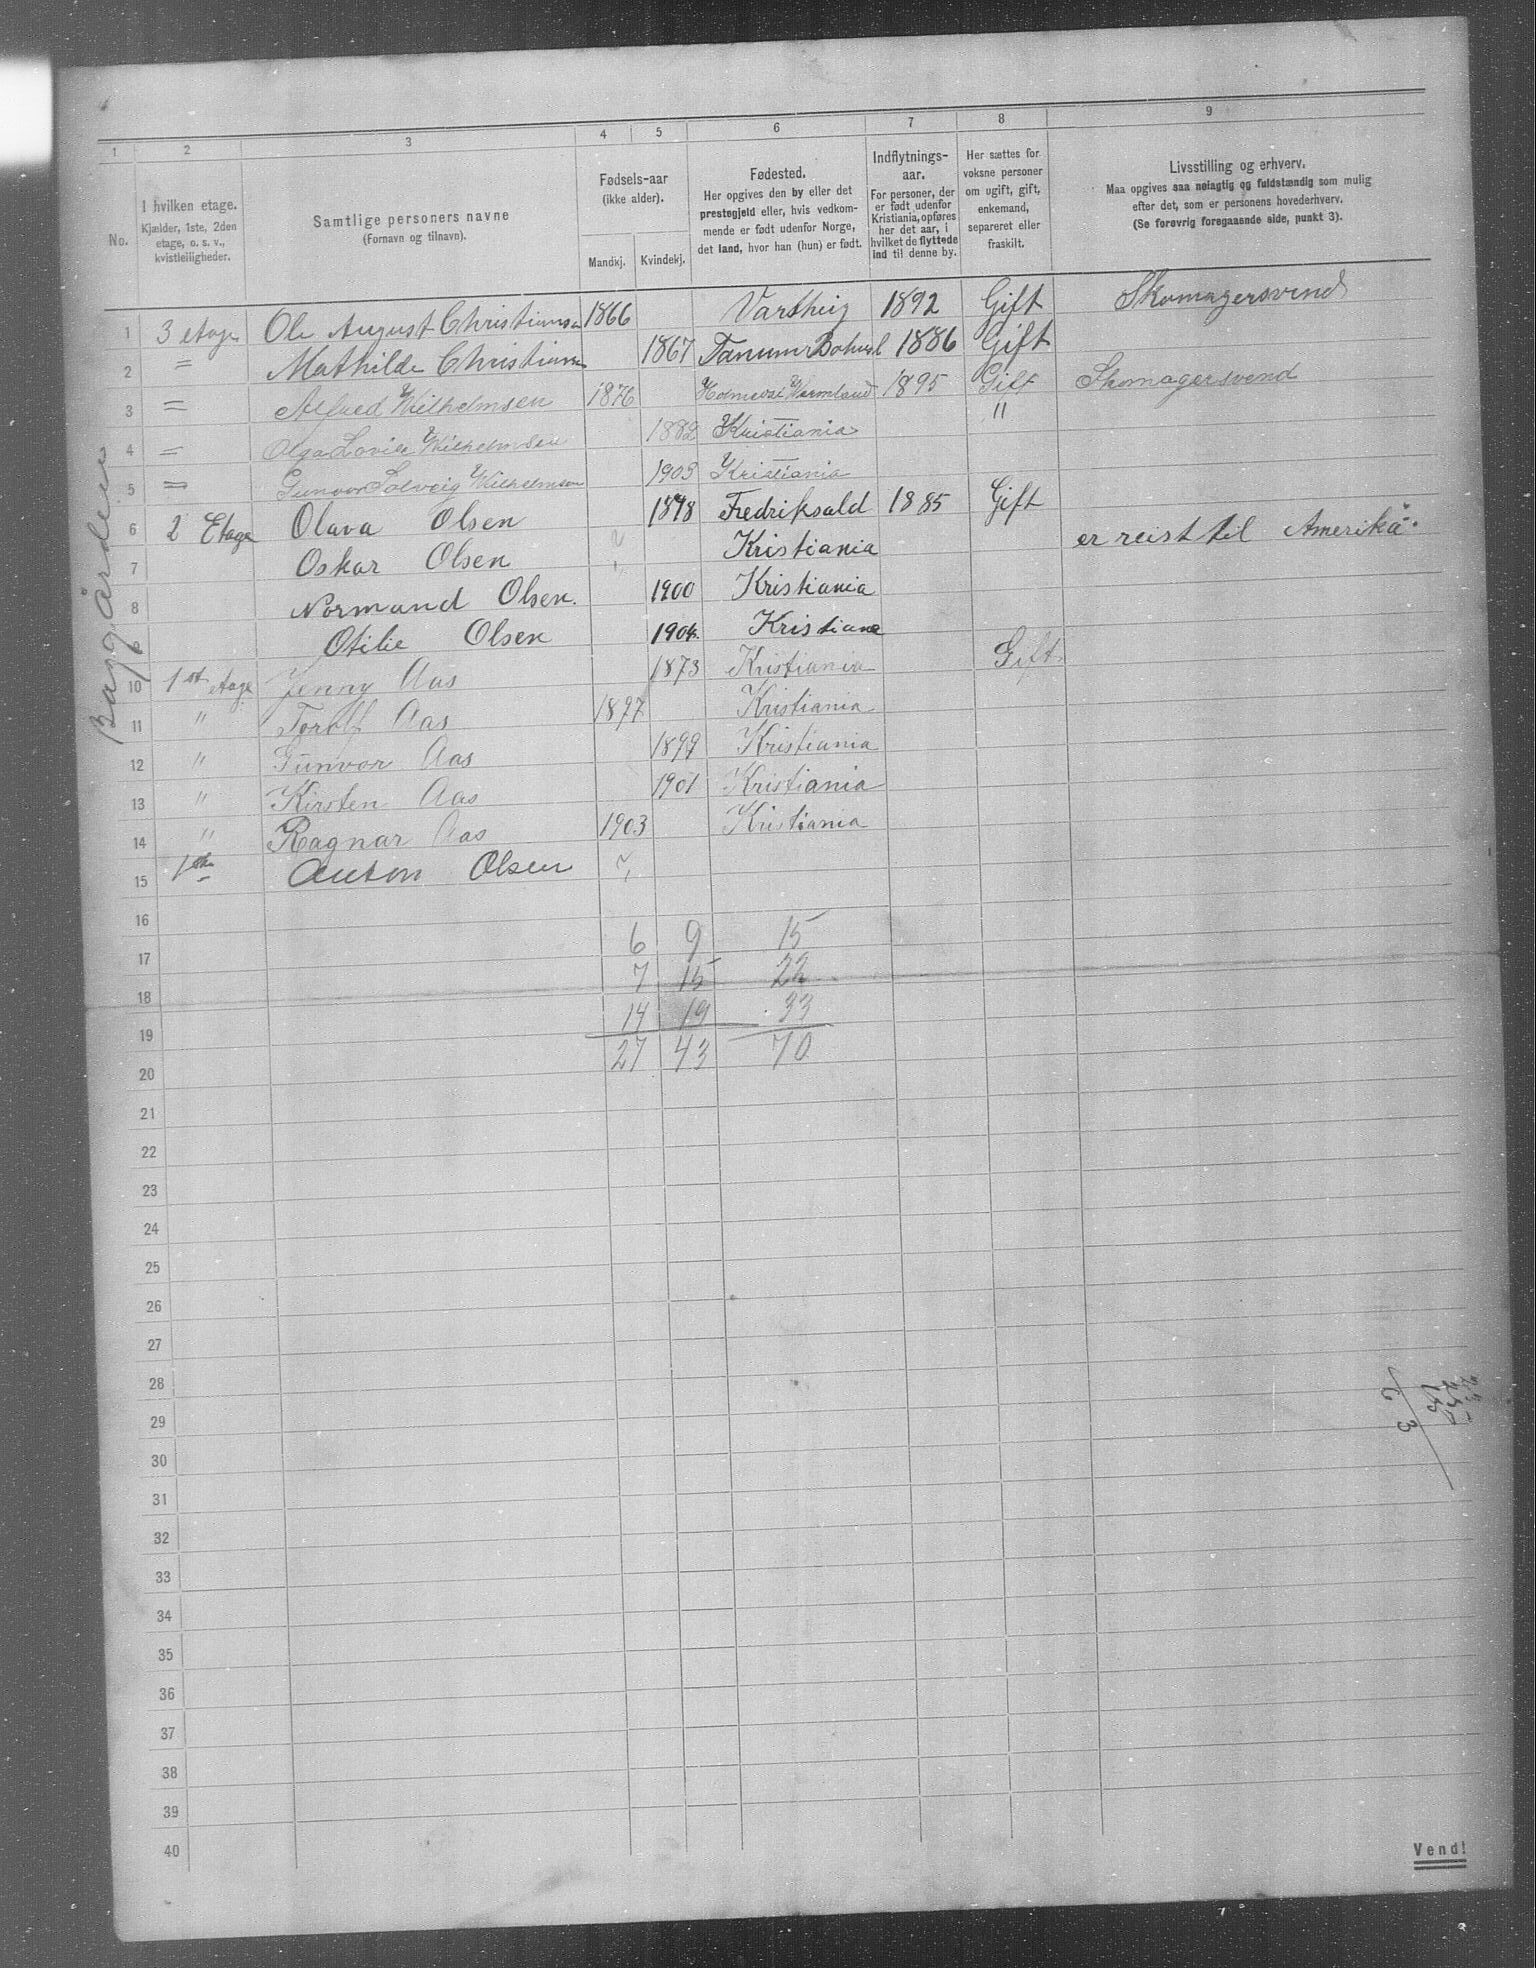 1 2 3 4 5 6 7 8 9
No.
I hvilken etage.
Kjælder, 1ste, 2den
etage, o. s. v.,
kvistleiligheder.
Samtlige personers navne
(Fornavn og tilnavn).
Fødsels-aar
(ikke alder).
Mandkj. Kvindekj.
Fødested.
Her opgives den by eller det
prestegjeld eller, hvis vedkom-
mende er født udenfor Norge,
det land, hvor han (hun) er født.
Indflytnings-
aar.
For personer, der
er født udenfor
Kristiania, opføres
her det aar, i
hvilket de flyttede
ind til denne by.
Her sættes for
voksne personer
om ugift, gift,
enkemand,
separeret eller
fraskilt.
Livsstilling og erhverv.
Maa opgives saa nøiagtig og fuldstændig som mulig
efter det, som er personens hovederhverv.
(Se forøvrig foregaaende side, punkt 3).
Baggården
1 3 etage Ole August Christiansen 1866 Varteig 1892 Gift Skomagersvend
2 = Mathilde Christiansen 1867 Tanum Bohusl 1886 Gift
3 = Alfred Wilhelmsen 1876 Warmland 1895 Gift Skomagersvend
4 = Olga Lovise Wilhelmsen 1882 Kristiania "
5 = Gunvor Solveig Wilhelmsen 1903 Kristiania
6 2 Etage Olava Olsen 1878 Fredriksald 1885 Gift
7 Oskar Olsen Kristiania er reist til Amerika.
8 Normand Olsen. 1900 Kristiania
Otilie Olsen 1904. Kristiane
10 1st etage Jenny Aas 1873 Kristiania Gift
11 " Torolf Aas 1897 Kristiania
12 " Gunvor Aas 1899 Kristiania
13 " Kirsten Aas 1901 Kristiania
14 " Ragnar Aas 1903 Kristiania
15 1ste Anton Olsen
16
17 6 9 15
18 7 15 22
19 14 19 33
20 27 43 70
21
22
23
24
25
26
27
28
29
30
31
32
33
34
35
36
37
38
39
40
Vend!